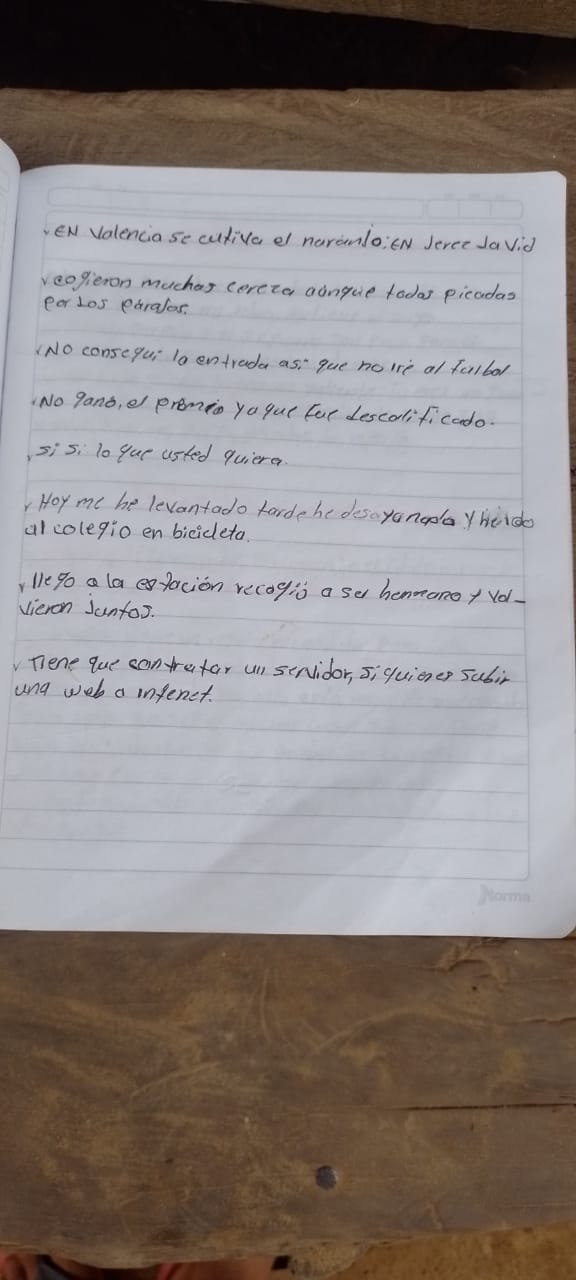 EN Valencia se cutiva el naranlo; EN Jerez la vid
cogieron muchas cereza aunque todas picadas
por Los pàralos.
NO consequi la entrada asi que no iré al futbol
NO ganó, el premio ya que fue descalificado.
si si lo que usted quiera.
Hoy me he levantado tarde he desayunado y he ido
al colegio en bicicleta.
llego a la estación recogió a su hermano y vol-
vieron juntos.
Tiene que contratar un servidor, si quieres subir
una web a infenet.
Norma